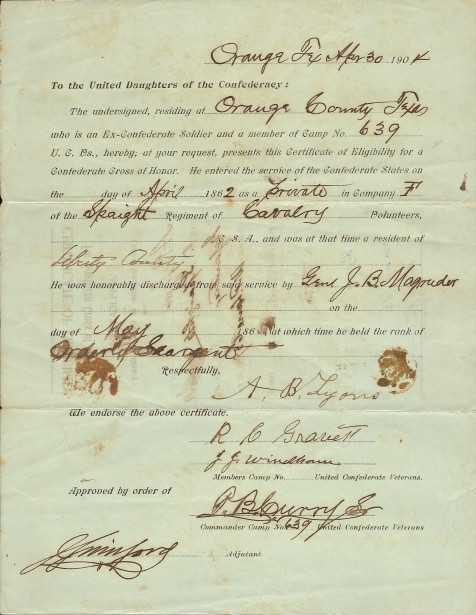 Orange Tex Apr 30 1904
To the United Daughters of the Confederacy:
The undersigned, residing at Orange County Texas
who is an Ex-Confederate Soldier and a member of Camp No. 639
U. C. Vs., hereby, at your request, presents this Certificate of Eligibility for a
Confederate Cross of Honor. He entered the service of the Confederate States on
the day of April 1862 as a Private in Company F
of the Spaight Regiment of Cavalry Volunteers,
C. S. A., and was at that time a resident of
Liberty County
He was honorably discharged from said service by Genl J. B. Magruder
on the
day of May 186 at which time he held the rank of
Orderly Seargent
Respectfully,
A. B. Lyons
We endorse the above certificate.
R C Gravett
J. J. Windham
Members Camp No. United Confederate Veterans.
Approved by order of
P. B. Curry Sr
Commander Camp No. 639 United Confederate Veterans
Adjutant.